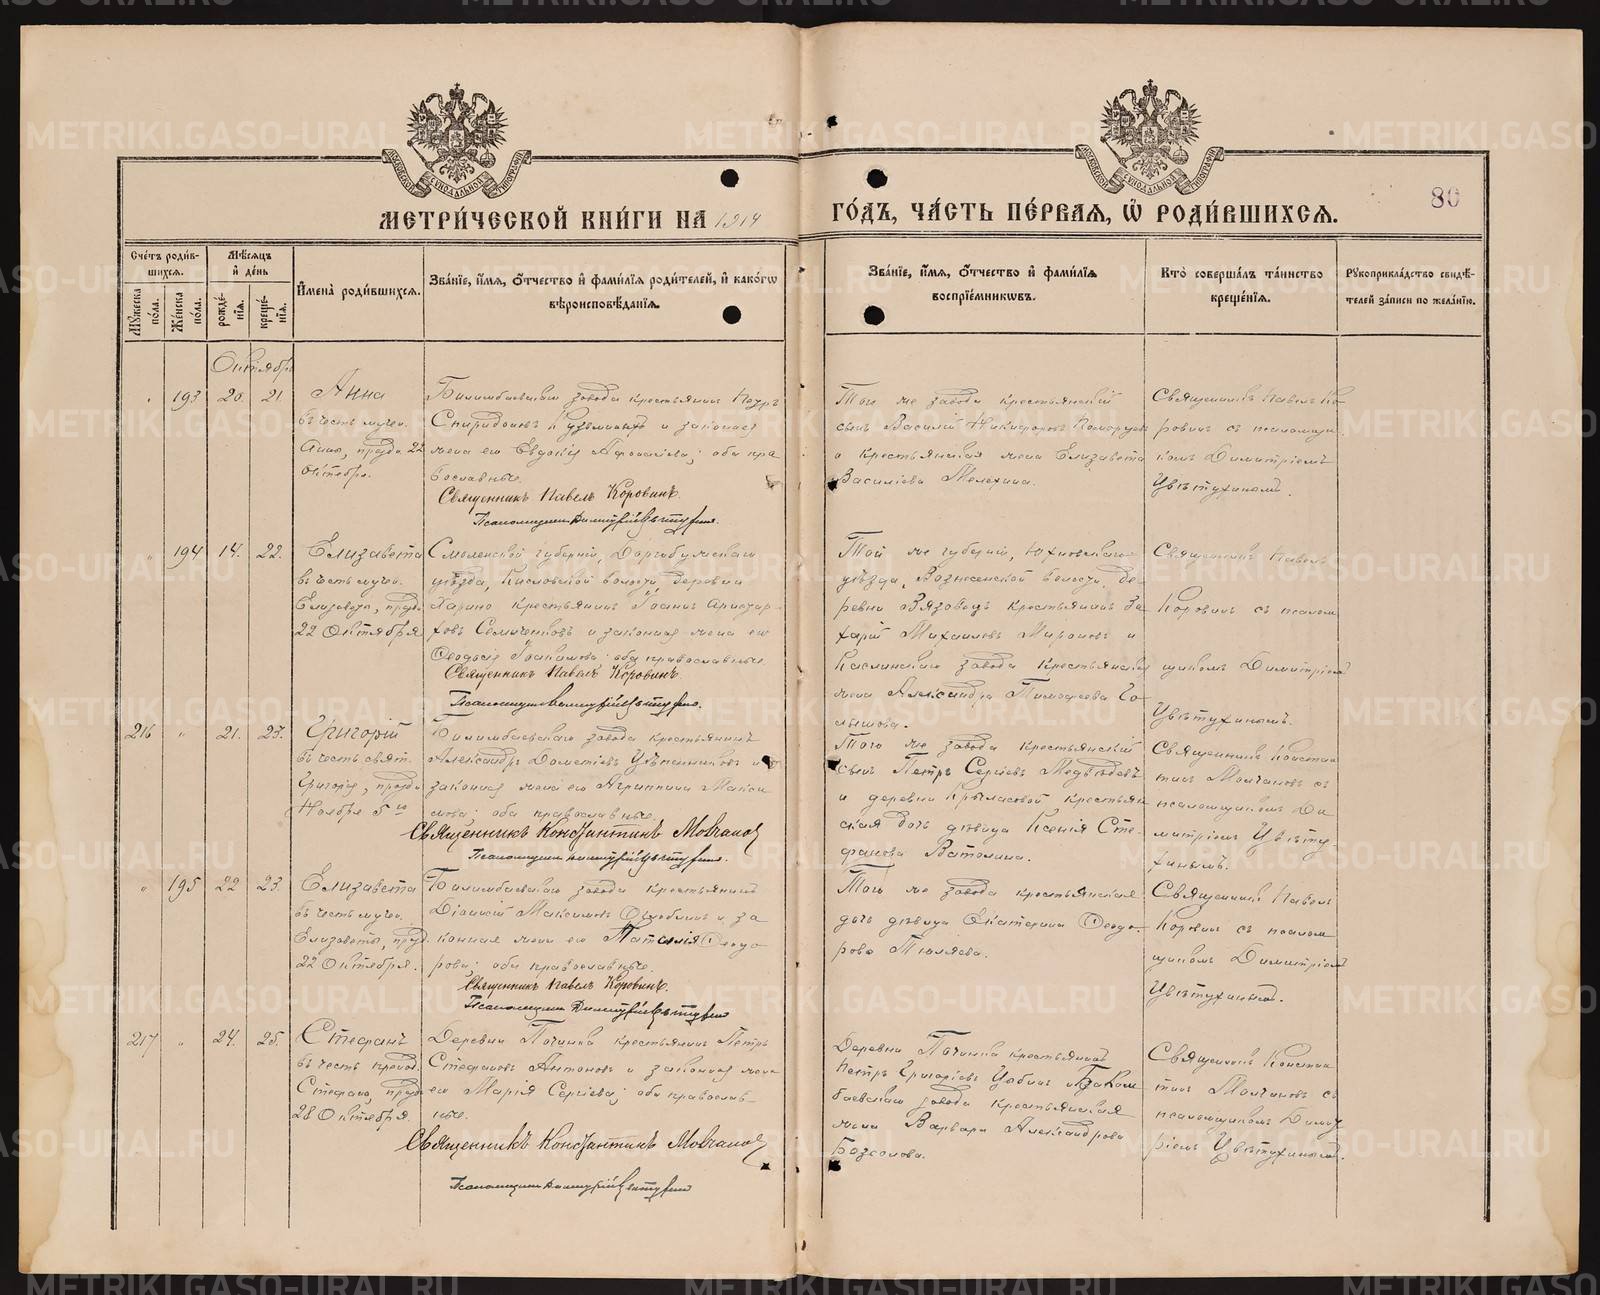 МЕТРИ́ЧЕСКОЙ КНИ́ГИ НА 1914 ГО́ДЪ, ЧА́СТЬ ПЕ́РВАЯ, Ѡ РОДИ́ВШИХСЯ.
80
Сче́тъ роди́вшихся.
Му́жеска по́ла.
Же́нска по́ла.
Мѣ́сяцъ и҆ де́нь
рожде́нїя.
креще́нїя.
И҆мена̀ роди́вшихся.
Зва́нїе, и҆́мя, ѻ҆́тчество и҆ фами́лїя роди́телей, и҆ како́гѡ
вѣроисповѣ́данїя.
Зва́нїе, и҆́мя, ѻ҆́тчество и҆ фами́лїя
воспрїе́мникѡвъ.
Кто̀ соверша́лъ та́инство
креще́нїя.
Рꙋкоприкла́дство свидѣ́-
телей за́писи по жела́нїю.
Октябрь
193 20. 21
Анна
въ честь мучен.
Анны, праздн. 22
Октября.
Билимбаевскаго завода крестьянинъ Петръ
Спиридоновъ и законная
жена его Евдокія; оба пра
вославные.
Священникъ Павелъ Коровинъ.
Псаломщикъ Димитрій Цвѣтухинъ.
Того же завода крестьянскій
сынъ Василій Никифоровъ
и крестьянская жена Елизавета
Василіева Мелехина.
Священникъ Павелъ Ко-
ровинъ съ псаломщи
комъ Димитріемъ
Цвѣтухинымъ.
194 14. 22.
Елизавета
въ честь мучен.
Елизаветы, праздн.
22 Октября
Смоленской губерніи, Дорогобужскаго
уѣзда, Кисловской волости, деревни
Харино крестьянинъ Іоаннъ Аристар-
ховъ и законная жена его
Ѳеодосія Іоакимова; оба православные.
Священникъ Павелъ Коровинъ.
Псаломщикъ Димитрій Цвѣтухинъ.
Той же губерніи, Юхновскаго
уѣзда, Вознесенской волости, де-
ревни Вязовецъ крестьянинъ За-
харій Михаиловъ Мироновъ и
Каслинскаго завода крестьянская
жена Александра Тимофеева Го-
лышова.
Священникъ Павелъ
Коровинъ съ псалом
щикомъ Димитріемъ
Цвѣтухинымъ.
216 " 21. 23.
Григорій
въ честь свят.
Григорія, праздн.
Ноября 5го
Билимбаевскаго завода крестьянинъ
Александръ Дометіевъ и
законная жена его Агриппина Макси
мова; оба православные.
Священникъ Константинъ Молчановъ
Псаломщикъ Димитрій Цвѣтухинъ.
Того же завода крестьянскій
сынъ Петръ Сергіевъ Медвѣдевъ
и деревни Крыласовой крестьян
ская дочь дѣвица Ксенія Сте-
фанова Ватолина.
Священникъ Констан
тинъ Молчановъ съ
псаломщикомъ Ди
митріемъ Цвѣту-
хинымъ.
" 195 22 23.
Елизавета
въ честь мучен.
Елизаветы, празд.
22 Октября.
Билимбаевскаго завода крестьянинъ
Діонисій Максимовъ и за
конная жена его Наталія Ѳеодо-
рова; оба православные.
Священникъ Павелъ Коровинъ.
Псаломщикъ Димитрій Цвѣтухинъ
Того же завода крестьянская
дочь дѣвица Екатерина Ѳеодо-
рова Тюляева.
Священникъ Павелъ
Коровинъ съ псалом
щикомъ Димитріемъ
Цвѣтухинымъ.
217 " 24. 25.
Стефанъ
въ честь препод.
Стефана, праздн.
28 Октября.
Деревни Починка крестьянинъ Петръ
Стефановъ Антоновъ и законная жена
его Марія Сергіева; оба православ-
ные.
Священникъ Константинъ Молчановъ
Псаломщикъ Димитрій Цвѣтухинъ
Деревни Починка крестьянинъ
Петръ Григоріевъ и Билим
баевскаго завода крестьянская
жена Варвара Александрова
Священникъ Констан
тинъ Молчановъ съ
псаломщикомъ Димит
ріемъ Цвѣтухинымъ.
METRIKI.GASO-URAL.RU